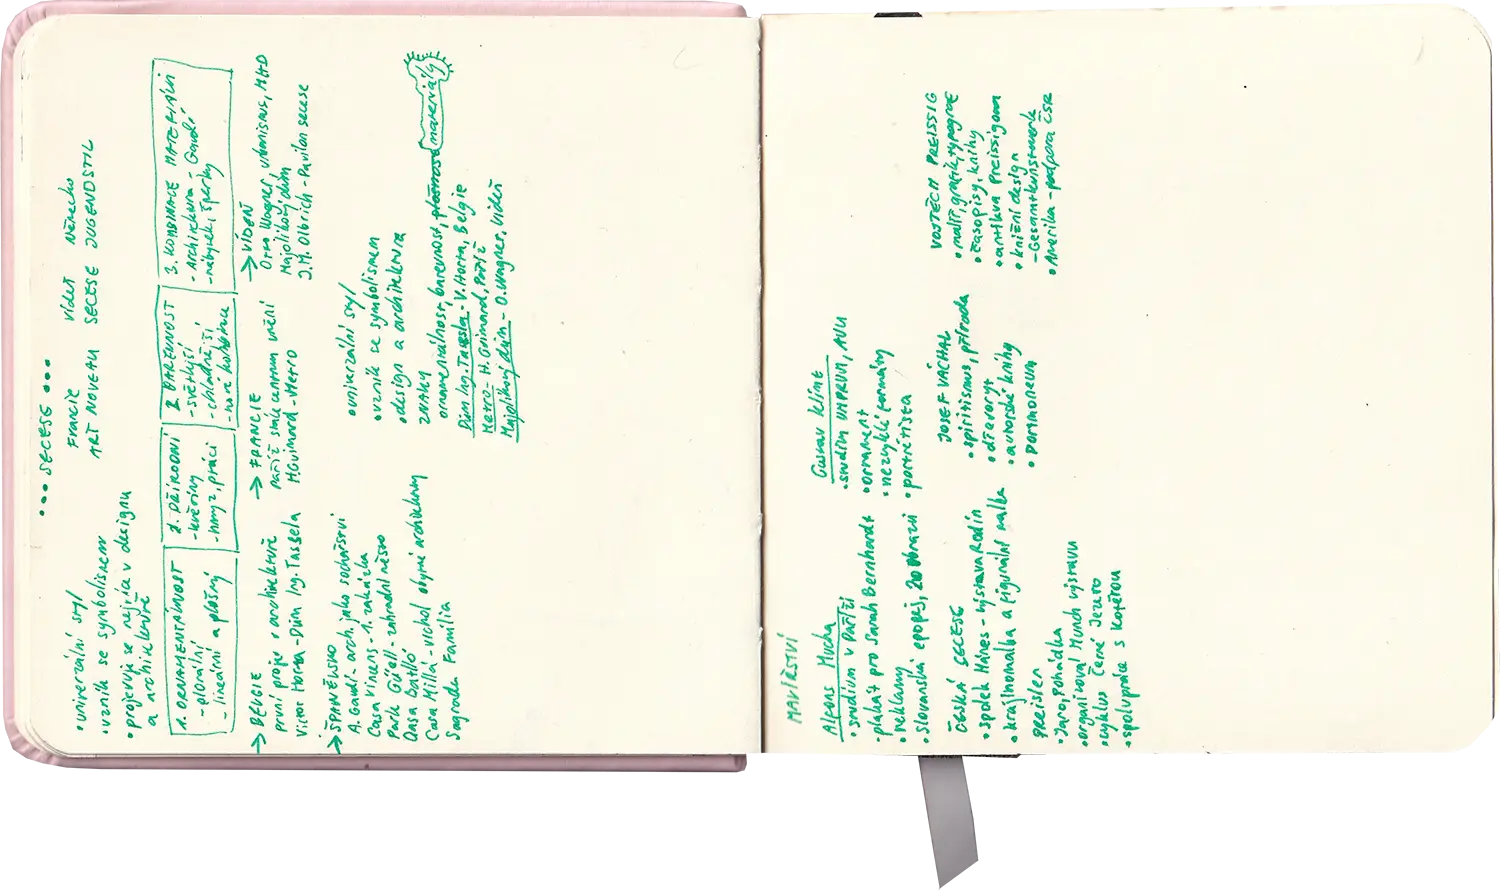 ... SECESE ...
• univerzální styl
• vznik se symbolismem
• projevuje se nejvíc v designu
a architektuře
Francie
ART NOVEAU
Vídeň
SECESE
Německo
JUGENDSTIL
1. ORNAMENTÁLNOST
- florální
- lineární a plošný
2. PŘÍRODNÍ
- květiny
- hmyz, ptáci
2. BAREVNOST
- světlejší
- chladnější
- nové kombinace
3. KOMBINACE MATERIÁLŮ
- Architektura - Gaudí
- nábytek i šperky
→ BELGIE
první projev v architektuře
Victor Horta - Dům Ing. Tassela
→ FRANCIE
Paříž stále centrum umění
H. Guimard - Metro
→ VÍDEŇ
Otto Wagner urbanismus, MHD
Majolikový dům
J. M. Olbrich - Pavilon secese
→ ŠPANĚLSKO
A. Gaudí - arch. jako sochařství
Casa Vincens - 1. zakázka
Park Güell - zahradní město
Casa Batlló
Casa Millá - vrchol obytné architektury
Sagrada Familia
• univerzální styl
• vznik se symbolismem
• design a architektura
ZNAKY
ornamentálnost, barevnost, plošnost materiály
Dům Ing. Tassela - V. Horta, Belgie
Metro - H. Guimard, Paříž
Majolikový dům - O. Wagner, Vídeň
MALÍŘSTVÍ
Alfons Mucha
• studium v Paříži
- plakát pro Sarah Bernhardt
• reklamy
• Slovanská epopej, 20 obrazů
Gustav Klimt
• studium UMPRUM, AVU
• ornament
• nezvyklé formáty
• portrétista
ČESKÁ SECESE
• spolek Mánes - výstava Rodin
• krajinomalba a figurální malba
Preisler
• Jaro, Pohádka
• organizoval Munch výstavu
• cyklus Černé Jezero
• spolupráce s Kotěrou
JOSEF VÁCHAL
• spiritismus, příroda
• dřevoryt
• autorské knihy
• Portmoneum
VOJTĚCH PREISSIG
• malíř, grafik, typograf
• časopisy, knihy
• antikva Preissigova
• knižní design
- Gesamtkunstwerk
• Amerika - podpora ČSR